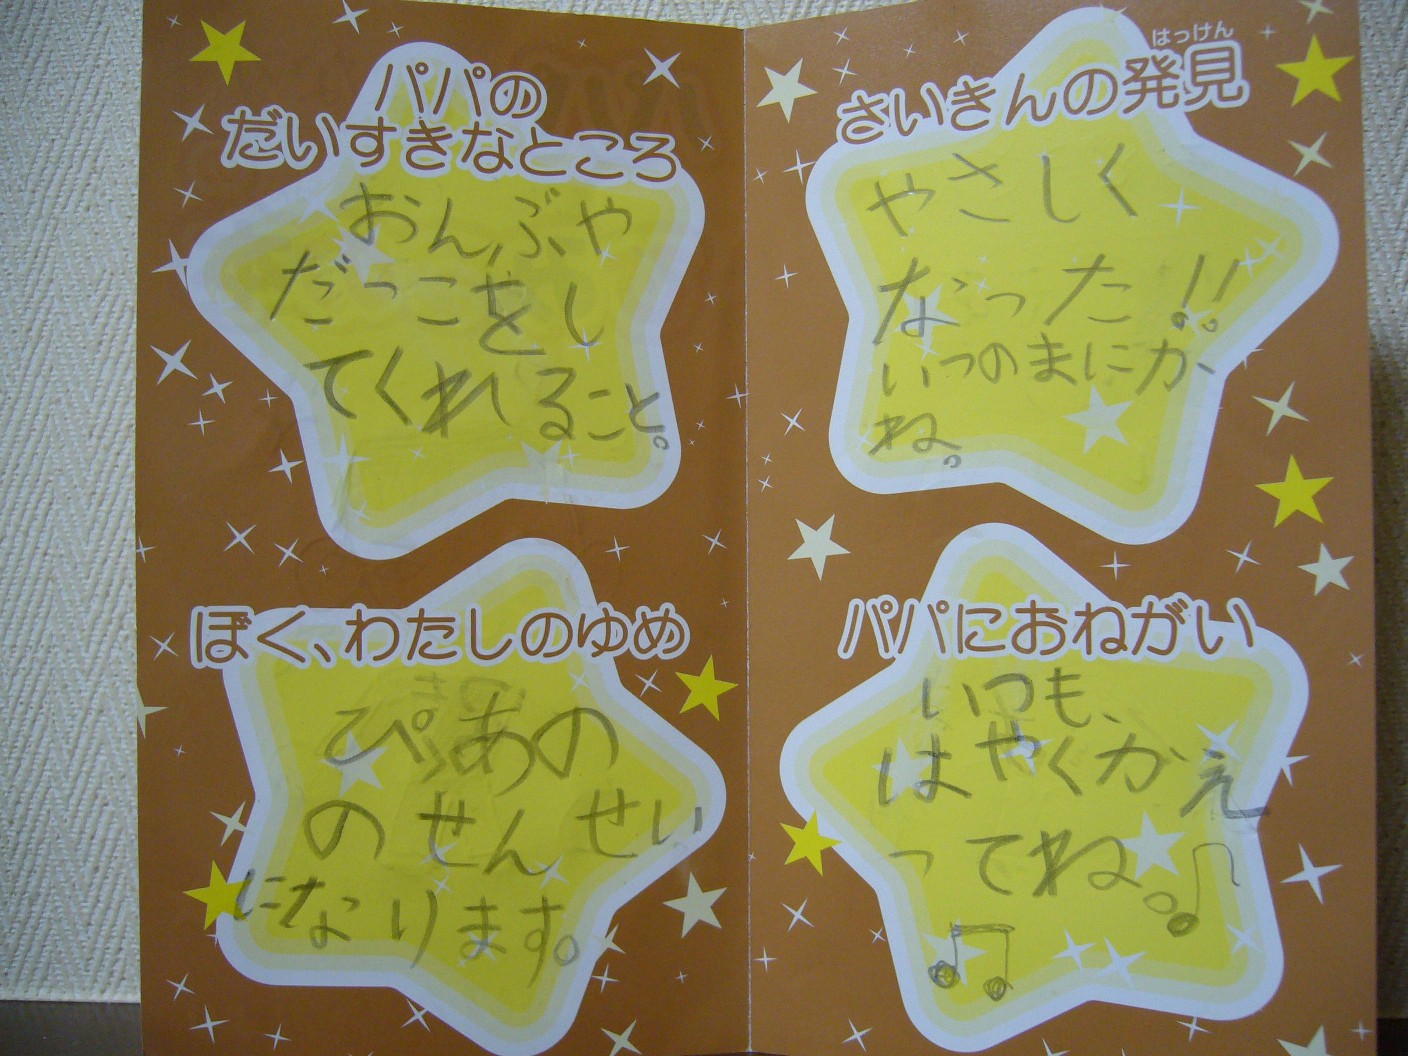 パパの
だいすきなところ
おんぶや
だっこをし
てくれること。
はっけん
さいきんの発見
やさしく
なった!!
いつのまにか
ね。
ぼく、わたしのゆめ
ぴあの
のせんせい
になります。
パパにおねがい
いつも、
はやくかえ
ってね。